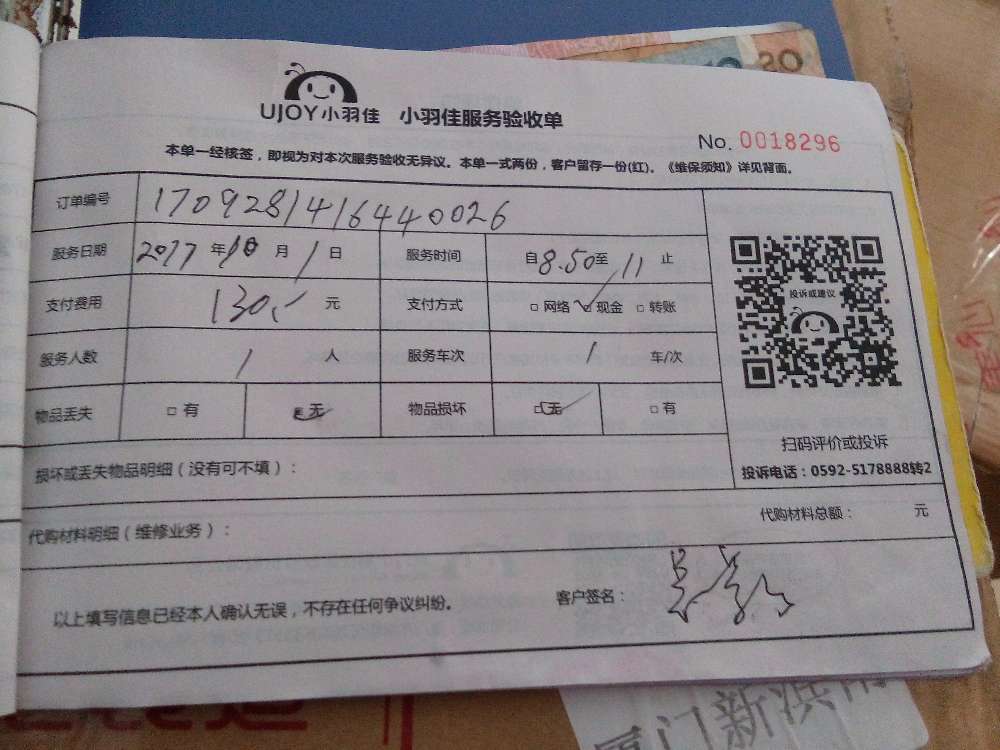 UJOY小羽佳 小羽佳服务验收单
No. 0018296
本单一经核签，即视为对本次服务验收无异议。本单一式两份，客户留存一份(红)。《维保须知》详见背面。
订单编号 1709281416440026
服务日期 2017 年 10 月 1 日 服务时间 自 8.50 至 11 止
支付费用 130.- 元 支付方式 □ 网络 ☑ 现金 □ 转账
投诉或建议
服务人数 1 人 服务车次 1 车/次
物品丢失 □ 有 ☑ 无 物品损坏 ☑ 无 □ 有
扫码评价或投诉
投诉电话：0592-5178888转2
损坏或丢失物品明细（没有可不填）：
代购材料明细（维修业务）： 代购材料总额： 元
以上填写信息已经本人确认无误，不存在任何争议纠纷。 客户签名：
厦门新滨